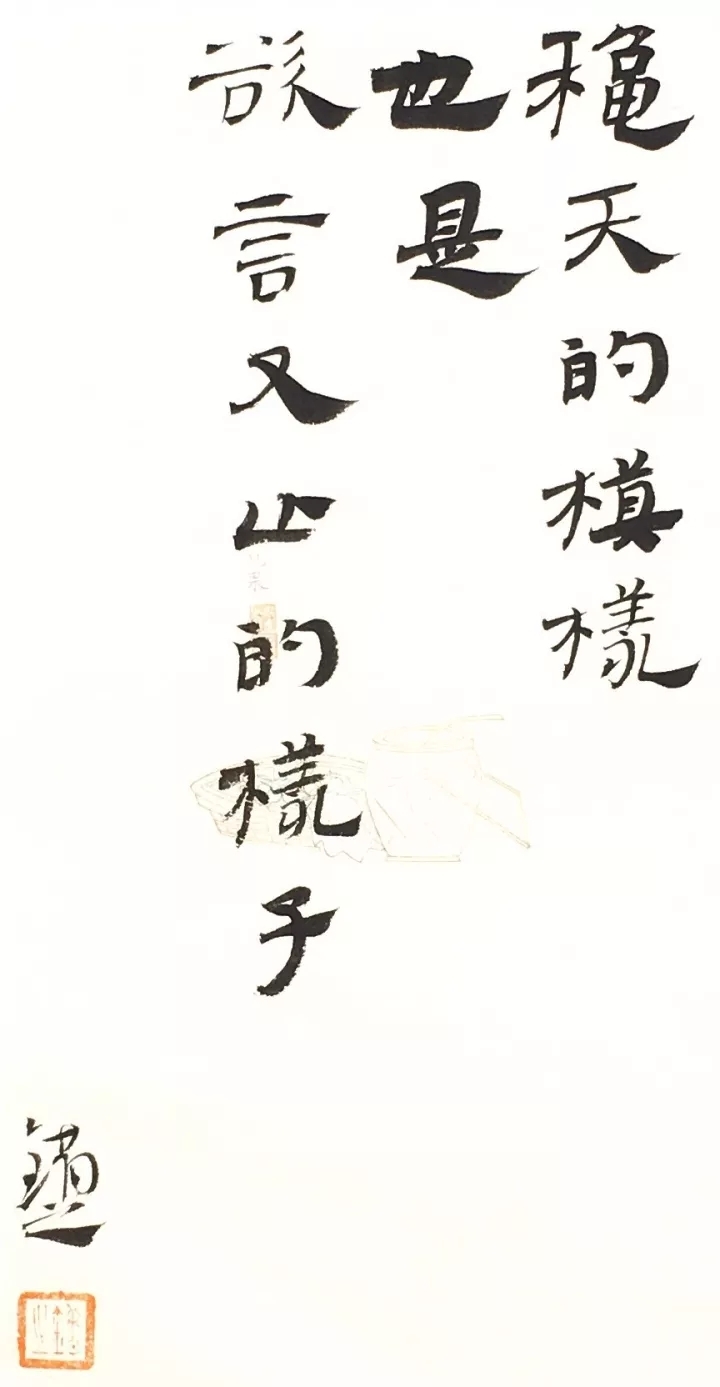 龝天的模樣
也是
欲言又止的樣子